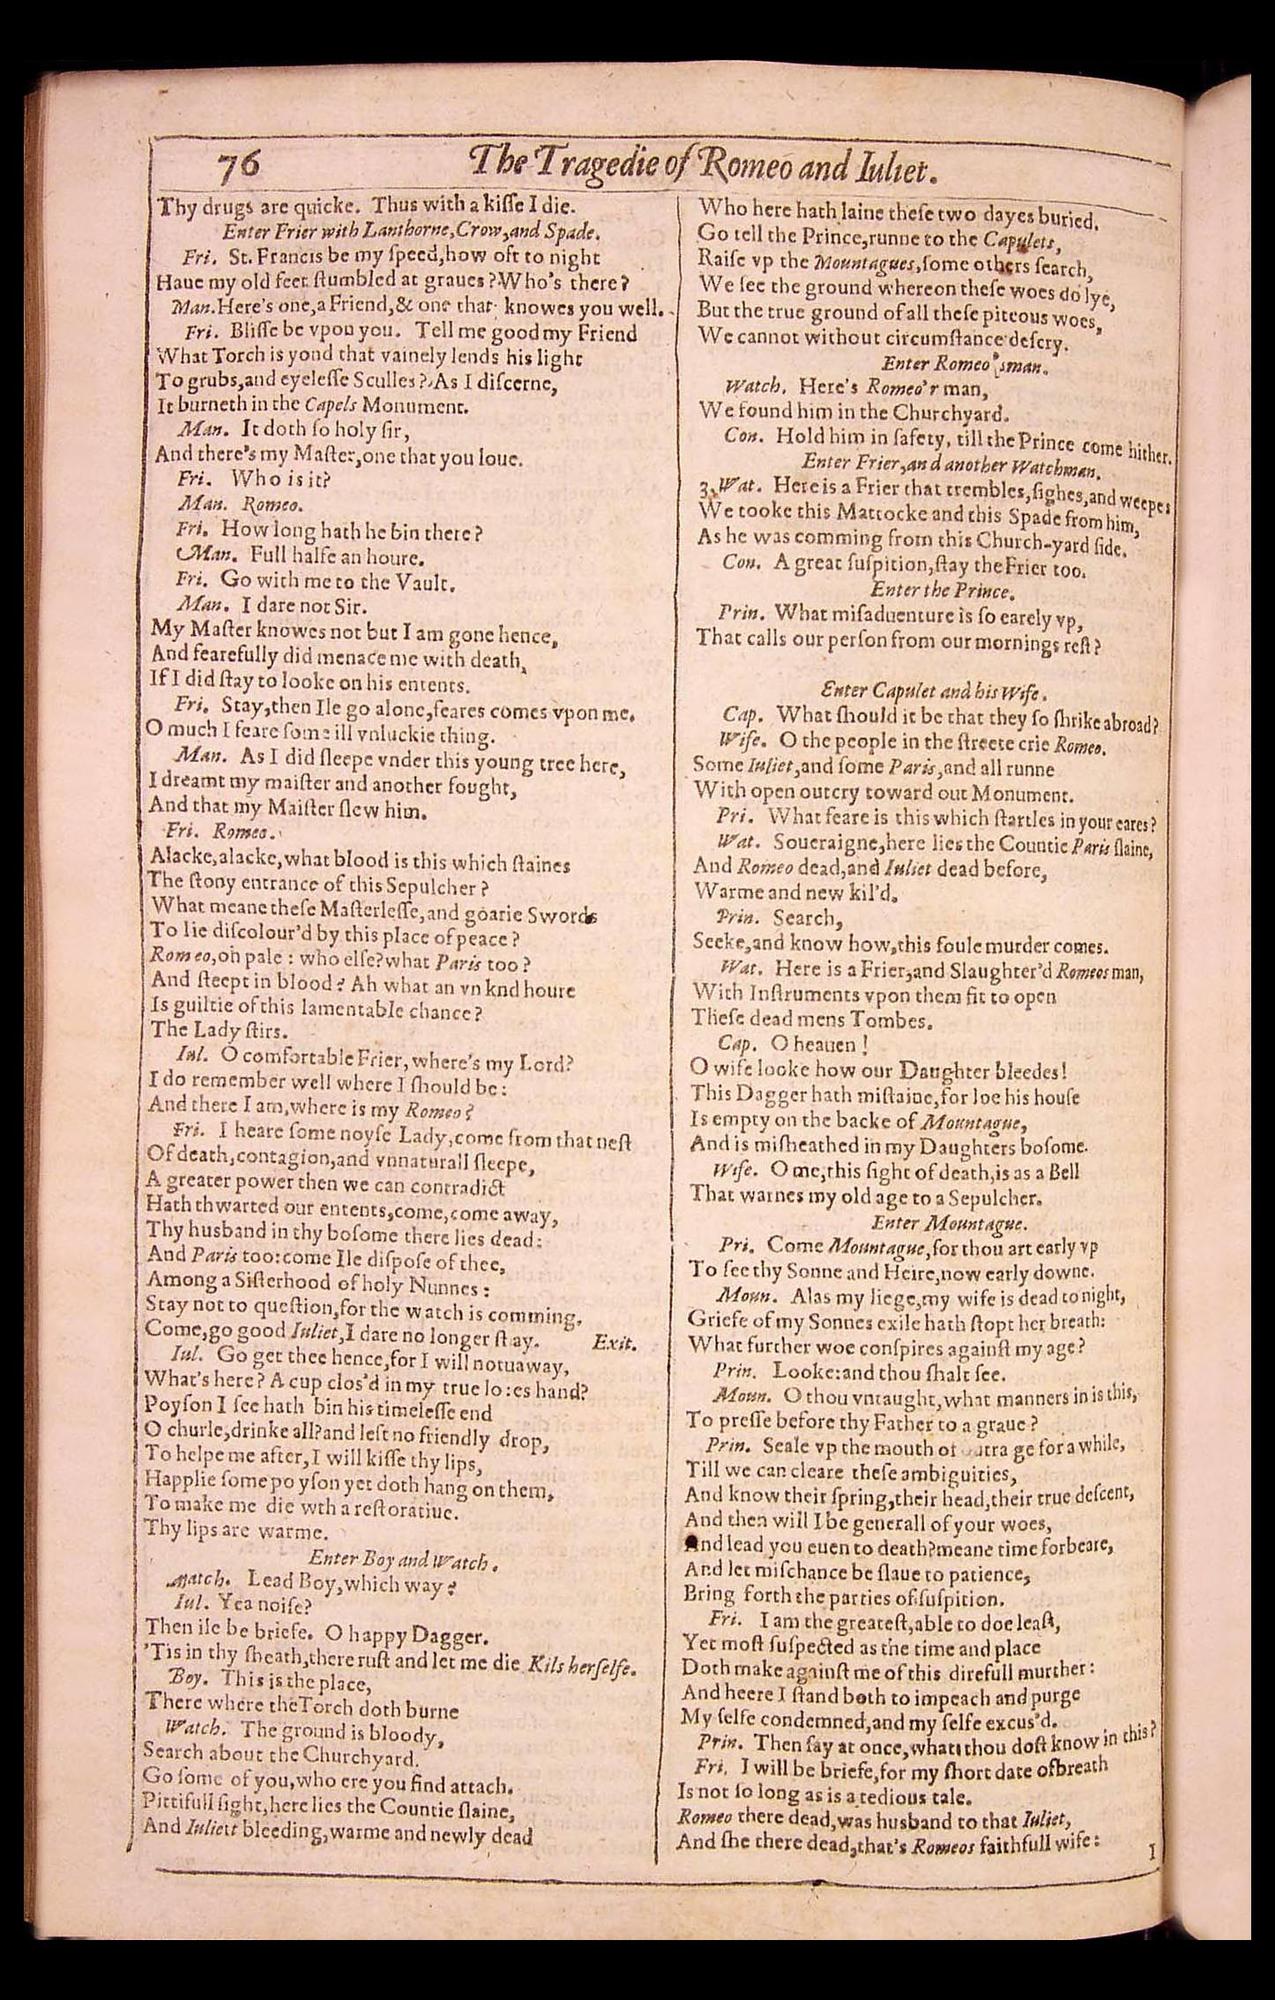 76
The Tragedie of Romeo and Iuliet.
Thy drugs are quicke. Thus with a kiſſe I die.
Enter Frier with Lanthorne, Crow, and Spade.
Fri. St. Francis be my ſpeed, how oft to night
Haue my old feet ſtumbled at graues? Who's there?
Man. Here's one, a Friend, & one that knowes you well.
Fri. Bliſſe be vpon you. Tell me good my Friend
What Torch is yond that vainely lends his light
To grubs, and eyeleſſe Sculles? As I diſcerne,
It burneth in the Capels Monument.
Man. It doth ſo holy ſir,
And there's my Maſter, one that you loue.
Fri. Who is it?
Man. Romeo.
Fri. How long hath he bin there?
Man. Full halfe an houre.
Fri. Go with me to the Vault.
Man. I dare not Sir.
My Maſter knowes not but I am gone hence,
And fearefully did menace me with death,
If I did ſtay to looke on his entents.
Fri. Stay, then Ile go alone, feares comes vpon me.
O much I feare ſome ill vnluckie thing.
Man. As I did ſleepe vnder this young tree here,
I dreamt my maiſter and another fought,
And that my Maiſter ſlew him.
Fri. Romeo.
Alacke, alacke, what blood is this which ſtaines
The ſtony entrance of this Sepulcher?
What meane theſe Maſterleſſe, and goarie Swords
To lie diſcolour'd by this place of peace?
Romeo, oh pale: who elſe? what Paris too?
And ſteept in blood? Ah what an vn knd houre
Is guiltie of this lamentable chance?
The Lady ſtirs.
Iul. O comfortable Frier, where's my Lord?
I do remember well where I ſhould be:
And there I am, where is my Romeo?
Fri. I heare ſome noyſe Lady, come from that neſt
Of death, contagion, and vnnaturall ſleepe,
A greater power then we can contradict
Hath thwarted our entents, come, come away,
Thy husband in thy boſome there lies dead:
And Paris too: come Ile diſpoſe of thee,
Among a Siſterhood of holy Nunnes:
Stay not to queſtion, for the watch is comming.
Come, go good Iuliet, I dare no longer ſtay. Exit.
Iul. Go get thee hence, for I will notuaway,
What's here? A cup clos'd in my true lo:es hand?
Poyſon I ſee hath bin his timeleſſe end
O churle, drinke all? and left no friendly drop,
To helpe me after, I will kiſſe thy lips,
Happlie ſome poyſon yet doth hang on them,
To make me die wth a reſtoratiue.
Thy lips are warme.
Enter Boy and Watch.
Watch. Lead Boy, which way?
Iul. Yea noiſe?
Then ile be briefe. O happy Dagger.
'Tis in thy ſheath, there ruſt and let me die Kils herſelfe.
Boy. This is the place,
There where the Torch doth burne
Watch. The ground is bloody,
Search about the Churchyard.
Go ſome of you, who ere you find attach.
Pittifull ſight, here lies the Countie ſlaine,
And Iuliett bleeding, warme and newly dead
Who here hath laine theſe two dayes buried.
Go tell the Prince, runne to the Capulets,
Raiſe vp the Mountagues, ſome others ſearch,
We ſee the ground whereon theſe woes do lye,
But the true ground of all theſe piteous woes,
We cannot without circumſtance deſcry.
Enter Romeo'sman.
Watch. Here's Romeo'r man,
We found him in the Churchyard.
Con. Hold him in ſafety, till the Prince come hither.
Enter Frier, and another Watchman.
3. Wat. Here is a Frier that trembles, ſighes, and weepes
We tooke this Mattocke and this Spade from him,
As he was comming from this Church-yard ſide.
Con. A great ſuſpition, ſtay the Frier too.
Enter the Prince.
Prin. What miſaduenture is ſo earely vp,
That calls our perſon from our mornings reſt?
Enter Capulet and his Wife.
Cap. What ſhould it be that they ſo ſhrike abroad?
Wife. O the people in the ſtreete crie Romeo.
Some Iuliet, and ſome Paris, and all runne
With open outcry toward out Monument.
Pri. What feare is this which ſtartles in your eares?
Wat. Soueraigne, here lies the Countie Paris ſlaine,
And Romeo dead, and Iuliet dead before,
Warme and new kil'd.
Prin. Search,
Seeke, and know how, this foule murder comes.
Wat. Here is a Frier, and Slaughter'd Romeos man,
With Inſtruments vpon them fit to open
Theſe dead mens Tombes.
Cap. O heauen!
O wife looke how our Daughter bleedes!
This Dagger hath miſtaine, for loe his houſe
Is empty on the backe of Mountague,
And is miſheathed in my Daughters boſome.
Wife. O me, this ſight of death, is as a Bell
That warnes my old age to a Sepulcher.
Enter Mountague.
Pri. Come Mountague, for thou art early vp
To ſee thy Sonne and Heire, now early downe.
Moun. Alas my liege, my wife is dead to night,
Griefe of my Sonnes exile hath ſtopt her breath:
What further woe conſpires againſt my age?
Prin. Looke: and thou ſhalt ſee.
Moun. O thou vntaught, what manners in is this,
To preſſe before thy Father to a graue?
Prin. Seale vp the mouth of outra ge for a while,
Till we can cleare theſe ambiguities,
And know their ſpring, their head, their true deſcent,
And then will I be generall of your woes,
And lead you euen to death? meane time forbeare,
And let miſchance be ſlaue to patience,
Bring forth the parties of ſuſpition.
Fri. I am the greateſt, able to doe leaſt,
Yet moſt ſuſpected as the time and place
Doth make againſt me of this direfull murther:
And heere I ſtand both to impeach and purge
My ſelfe condemned, and my ſelfe excus'd.
Prin. Then ſay at once, what thou doſt know in this?
Fri. I will be briefe, for my ſhort date of breath
Is not ſo long as is a tedious tale.
Romeo there dead, was husband to that Iuliet,
And ſhe there dead, that's Romeos faithfull wife:
I